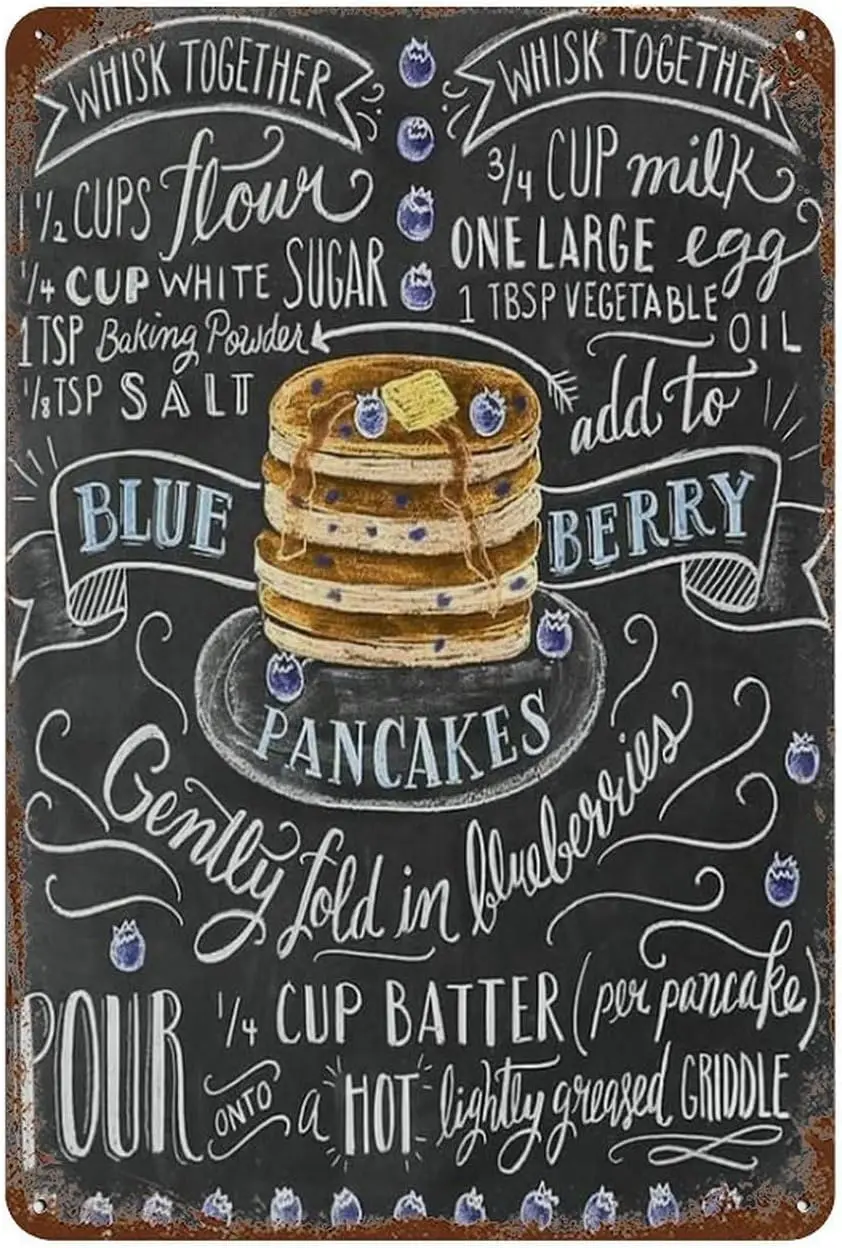 WHISK TOGETHER
1 1/2 CUPS flour
1/4 CUP WHITE SUGAR
1 TSP Baking Powder
1/8 TSP SALT
WHISK TOGETHER
3/4 CUP milk
ONE LARGE egg
1 TBSP VEGETABLE
OIL
add to
BLUE BERRY
PANCAKES
Gently fold in blueberries
POUR 1/4 CUP BATTER (per pancake)
ONTO a HOT lightly greased GRIDDLE